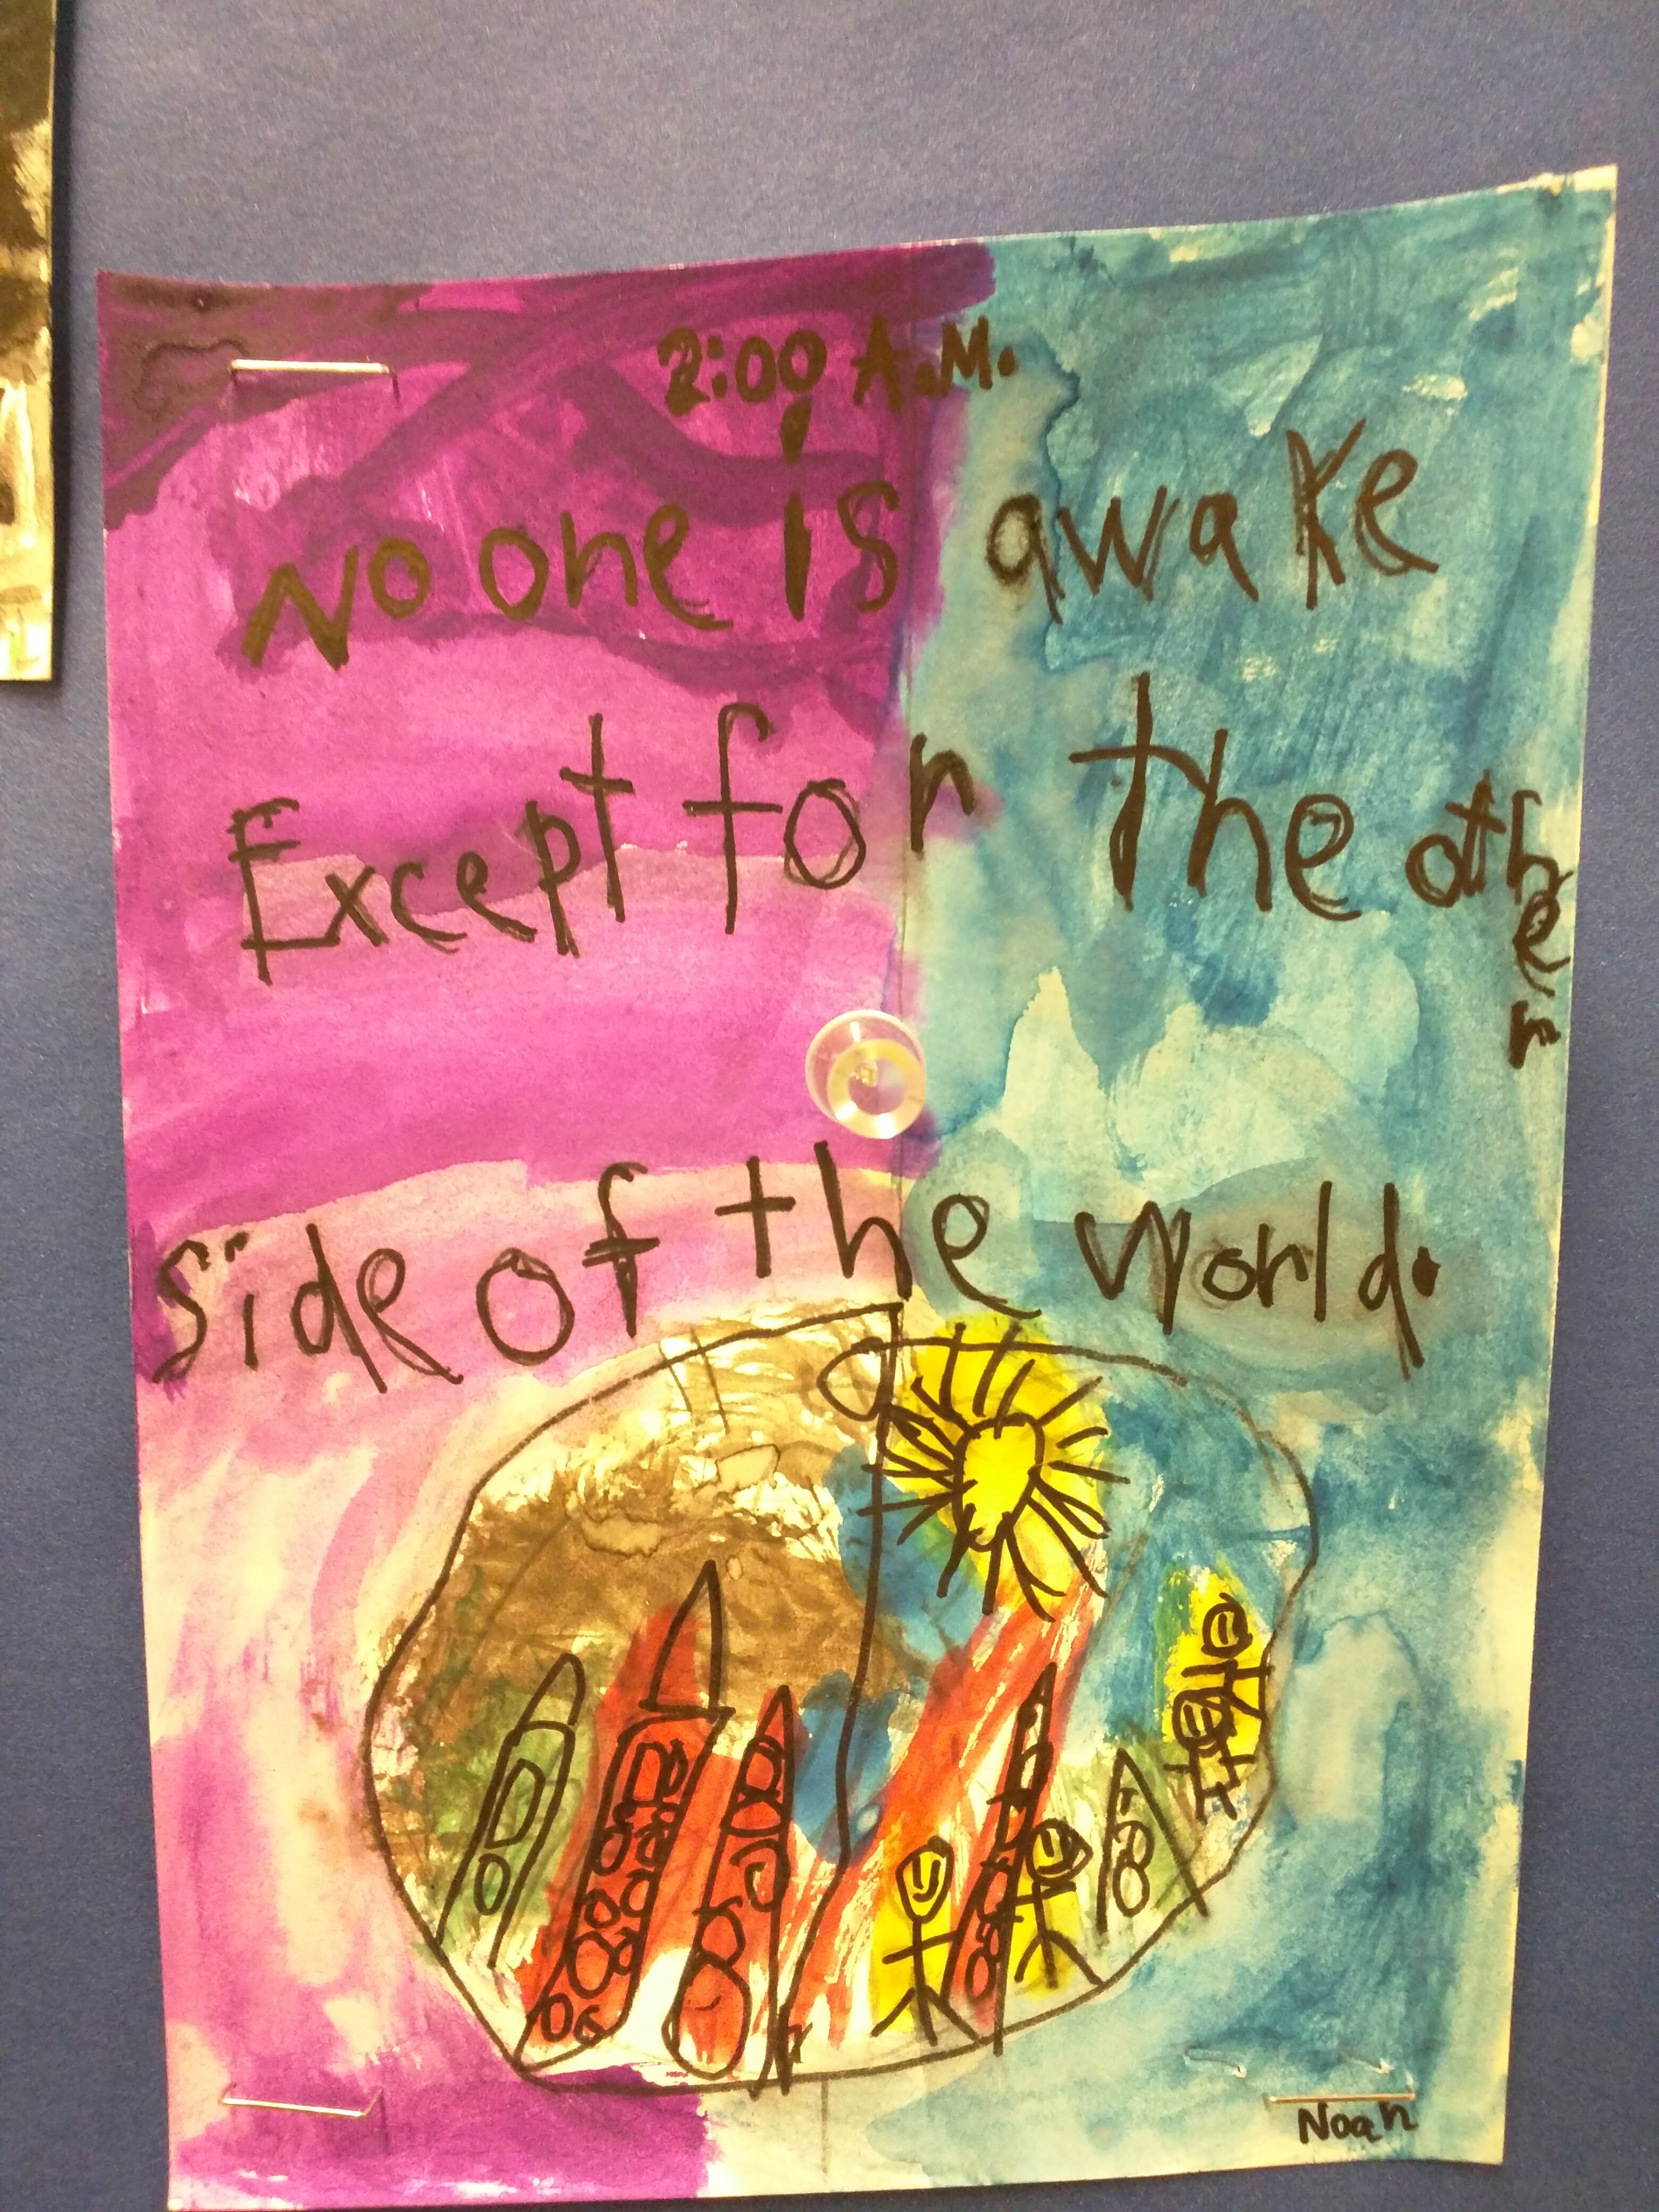 2:00 A.M.
No one is awake
Except for the other
side of the world.
Noah